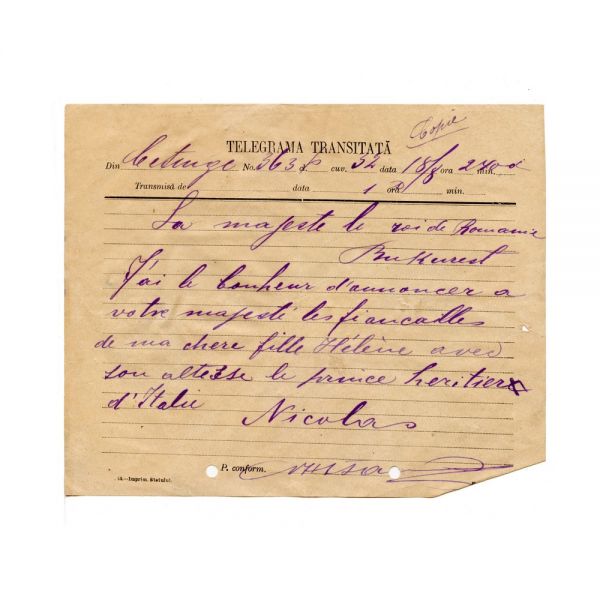 Copie
TELEGRAMA TRANSITATĂ
Din Cetinge No. 363 cuv. 32 data 18/8 ora 2 min.
Transmisă de data 1 oră min.
Sa majeste le roi de Romanie
Bukurest
J'ai le bonheur d'annoncer a
votre majesté les fiancailles
de ma chere fille Hélène avec
son altesse le prince heritier
d'Italie
Nicolas
P. conform.
Imprim. Statului.